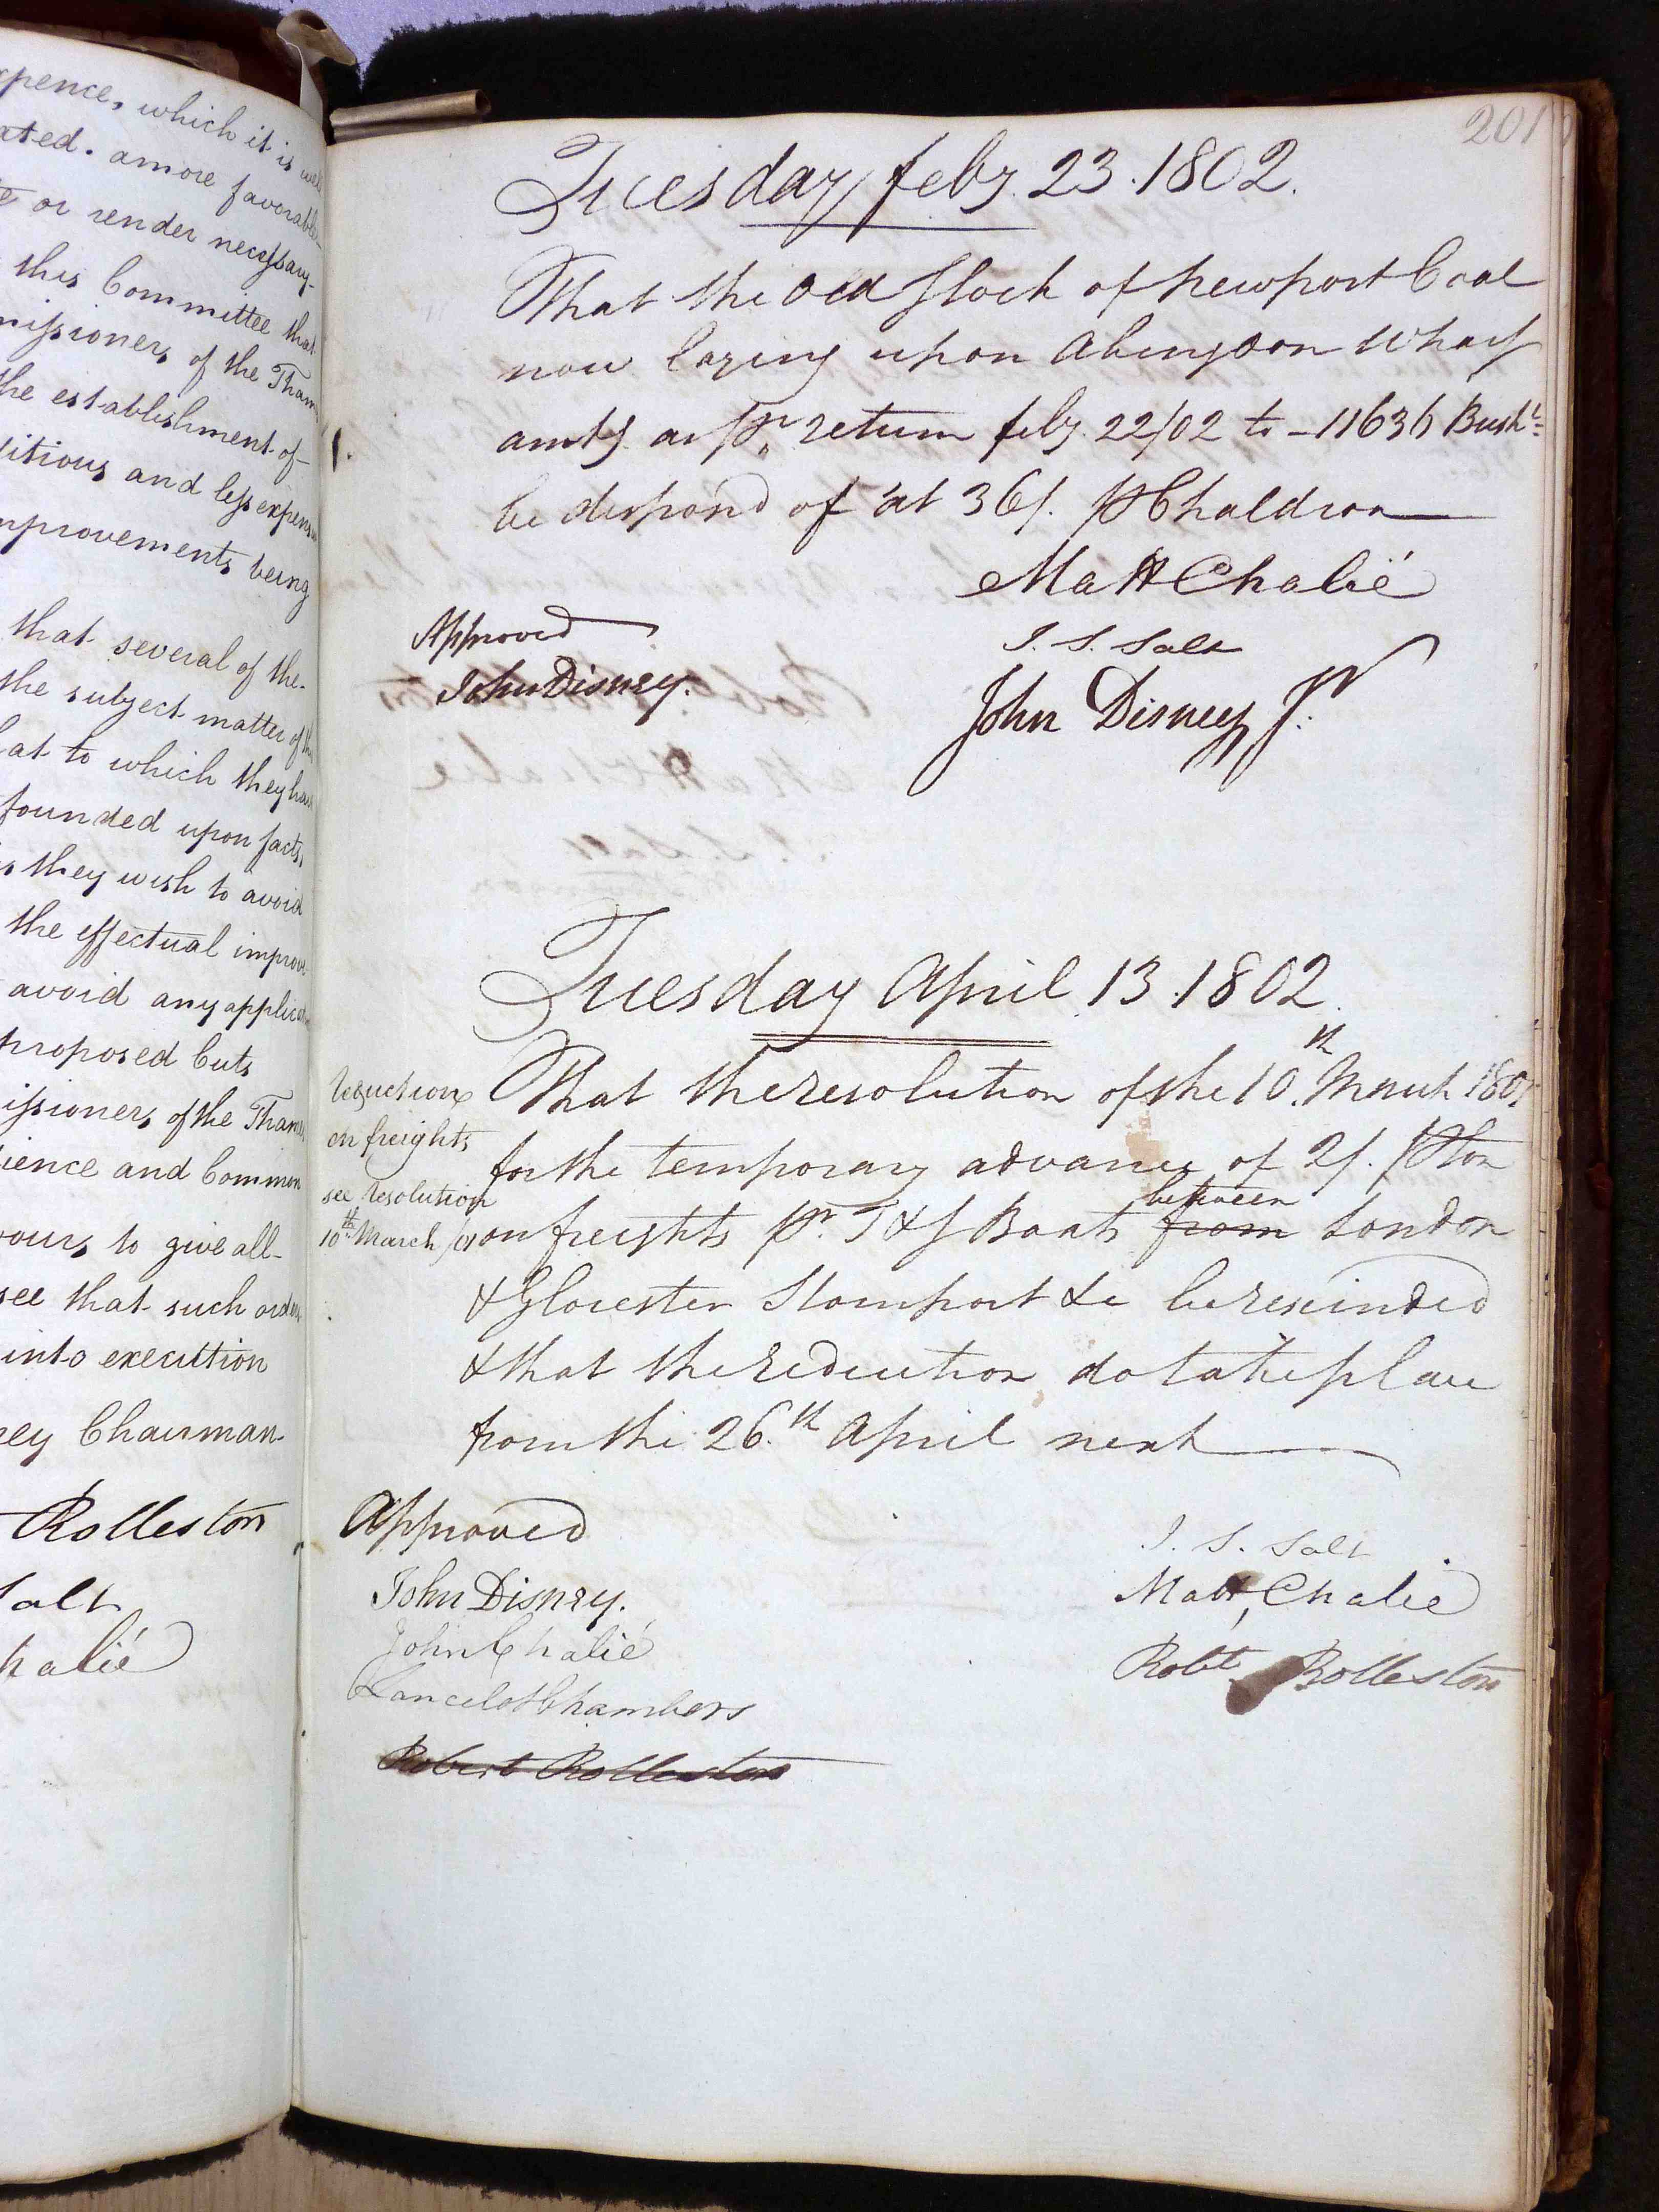 xpence, which it is well
ated. a more favorable
or render necessary
this Committee that
missioners of the Tham
the establishment of
ditious and less expens
mprovements being
that several of the
the subject matter of th
at to which they hav
founded upon facts,
they wish to avoid
the effectual improve
avoid any applicat
proposed Cuts
issioners of the Tham
ience and Common
ours to give all
see that such orders
into execution
ney Chairman
Rolleston
Salt
halié
201
Tuesday feby. 23. 1802.
That the Old Stock of Newport Coal
now laying upon Abingdon Wharf
amtg. as pr. return feby. 22/02 to - 11636 Bushs.
be dispos'd of at 36/. p Chaldron
Matt Chalié
Approved
J. S. Salt
John Disney.
John Disney Jr.
Tuesday April 13. 1802.
Reduction
on freights
see resolution
10th March /01
That the resolution of the 10.th March 1801
for the temporary advance of 2/. p ton
between
on freights pr. T & S Boats from London
& Glocester Stourport &c be rescinded
& that the reduction do take place
from the 26.th April next
Approved
J. S. Salt
John Disney.
Matt Chalié
John Chalié
Robt. Rolleston
Lancelot Chambers
Robert Rolleston